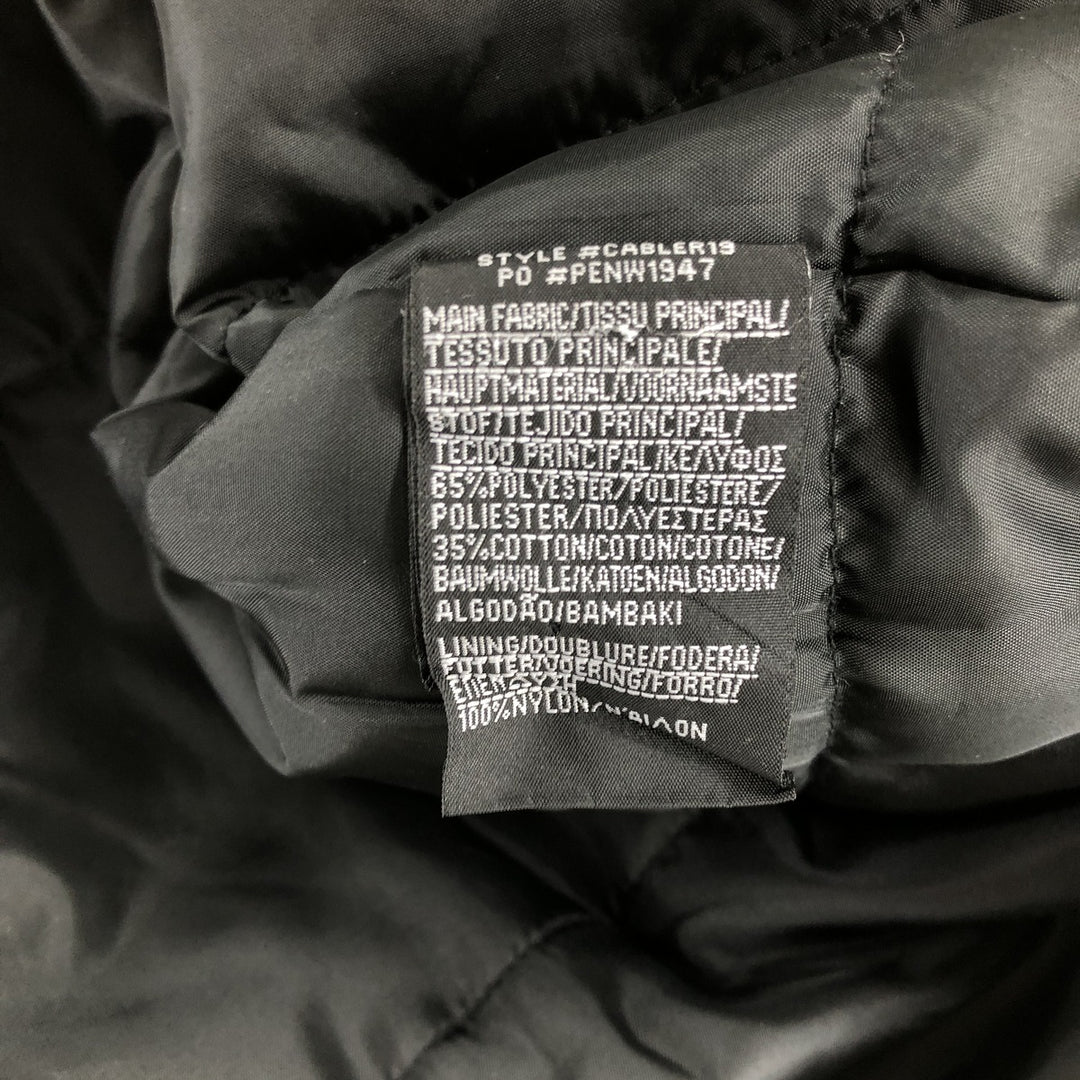 STYLE #CABLER19
PO #PENW1947
MAIN FABRIC/TISSU PRINCIPAL/
TESSUTO PRINCIPALE/
HAUPTMATERIAL/VOORNAAMSTE
STOF/TEJIDO PRINCIPAL/
TECIDO PRINCIPAL/ΚΕΛΥΦΟΣ
65%POLYESTER/POLIESTERE/
POLIESTER/ΠΟΛΥΕΣΤΕΡΑΣ
35%COTTON/COTON/COTONE/
BAUMWOLLE/KATOEN/ALGODON/
ALGODÃO/BAMBAKI
LINING/DOUBLURE/FODERA/
FUTTER/VOERING/FORRO/
100%NYLON/